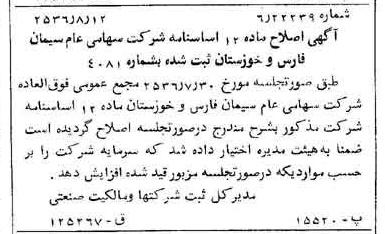 شماره ۶/۲۲۲۳۹ ۲۵۳۶/۸/۱۲
آگهی اصلاح ماده ۱۲ اساسنامه شرکت سهامی عام سیمان
فارس و خوزستان ثبت شده بشماره ۴۰۸۱
طبق صورتجلسه مورخ ۲۵۳۶/۷/۳۰ مجمع عمومی فوق‌العاده
شرکت سهامی عام سیمان فارس و خوزستان ماده ۱۲ اساسنامه
شرکت مذکور بشرح مندرج درصورتجلسه اصلاح گردیده است
ضمنا به‌هیئت مدیره اختیار داده شد که سرمایه شرکت را بر
حسب مواردیکه درصورتجلسه مزبور قید شده افزایش دهد .
مدیرکل ثبت شرکتها ومالکیت صنعتی
پ- ۱۵۵۲۰ ق- ۱۲۵۲۶۷